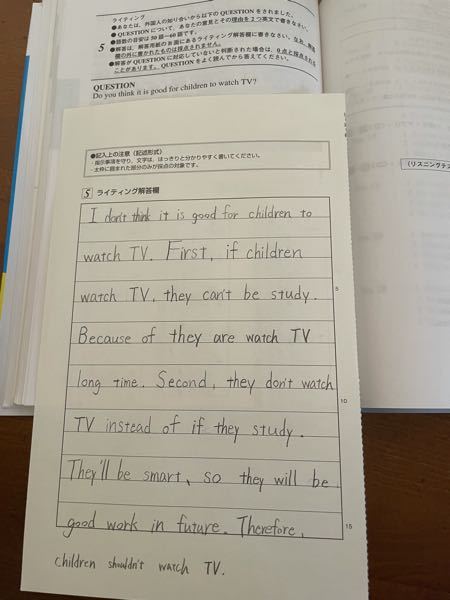 ライティング
●あなたは、外国人の知り合いから以下のQUESTIONをされました。
●QUESTIONについて、あなたの意見とその理由を2つ英文で書きなさい。
5 ●語数の目安は50語〜60語です。
●解答は、解答用紙のB面にあるライティング解答欄に書きなさい。なお、解答
欄の外に書かれたものは採点されません。
●解答がQUESTIONに対応していないと判断された場合は、0点と採点される
ことがあります。QUESTIONをよく読んでから答えてください。
QUESTION
Do you think it is good for children to watch TV?
●記入上の注意（記述形式）
・指示事項を守り、文字は、はっきりと分かりやすく書いてください。
・太枠に囲まれた部分のみが採点の対象です。
(リスニングテス
5 ライティング解答欄
I don't think it is good for children to
watch TV. First, if children
watch TV, they can't be study. 5
Because of they are watch TV
long time. Second, they don't watch 10
TV instead of if they study.
They'll be smart, so they will be
good work in future. Therefore, 15
children shouldn't watch TV.